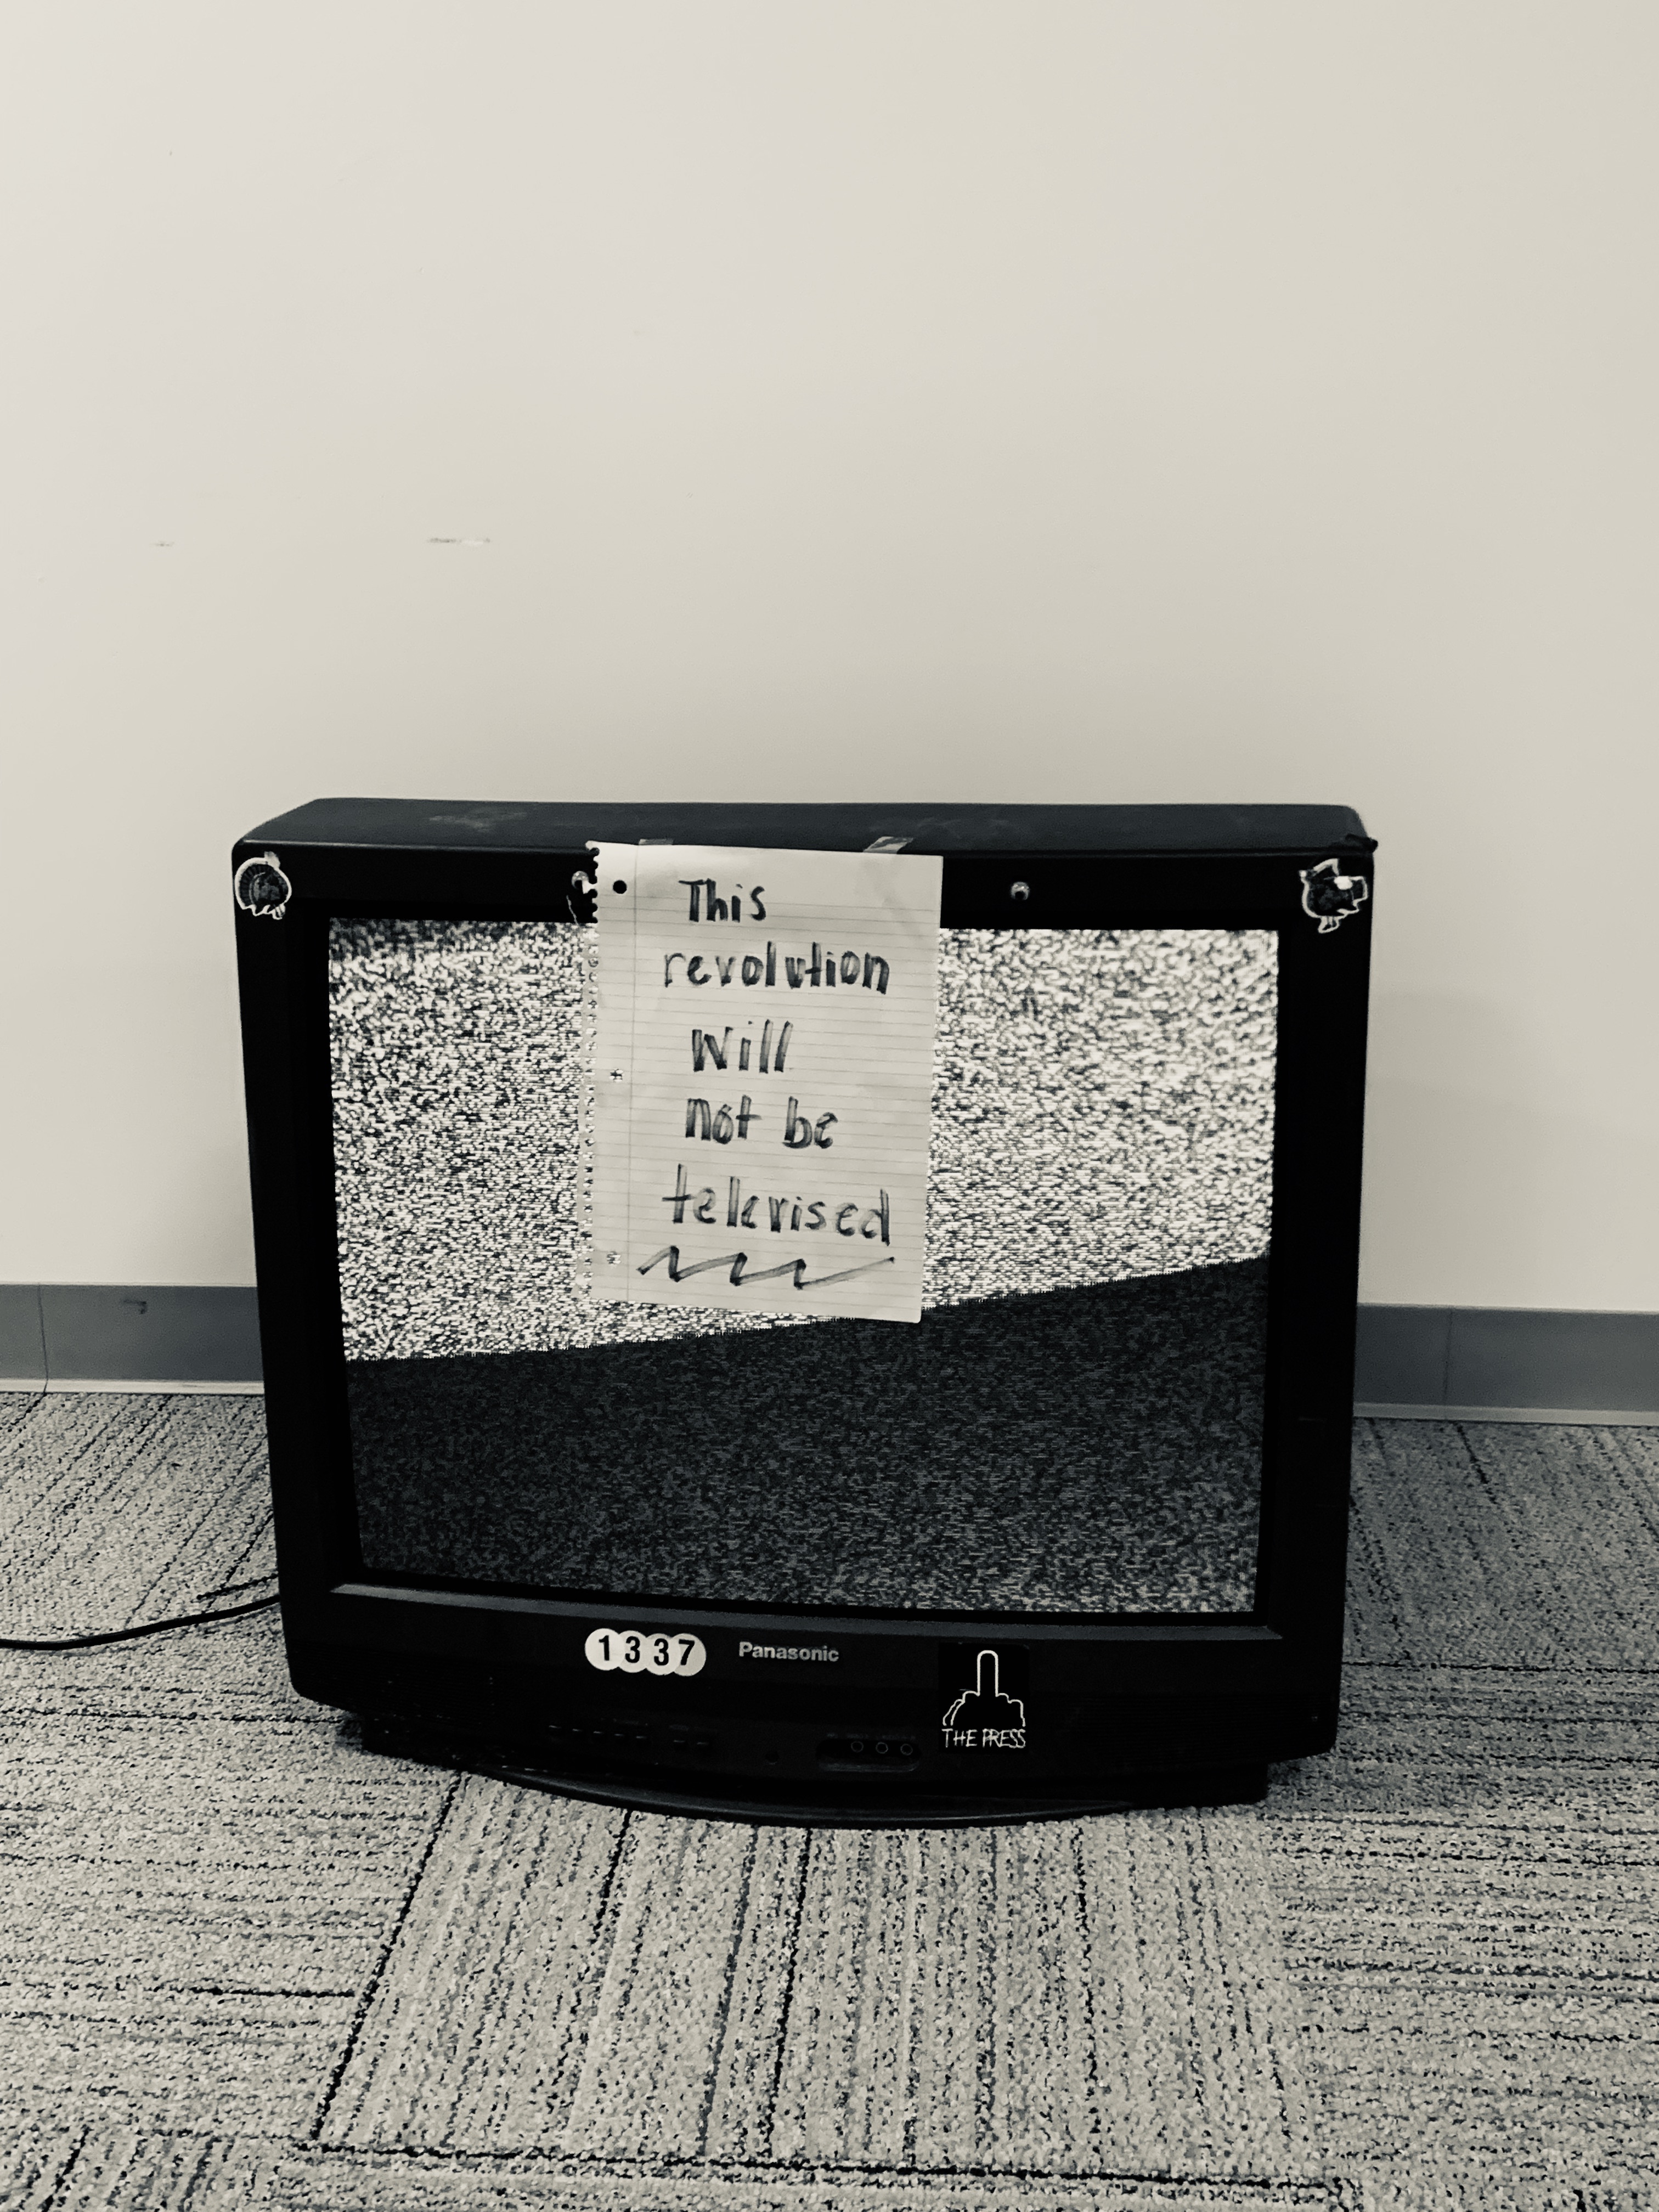 This
revolution
Will
not be
televised
1337
Panasonic
THE PRESS